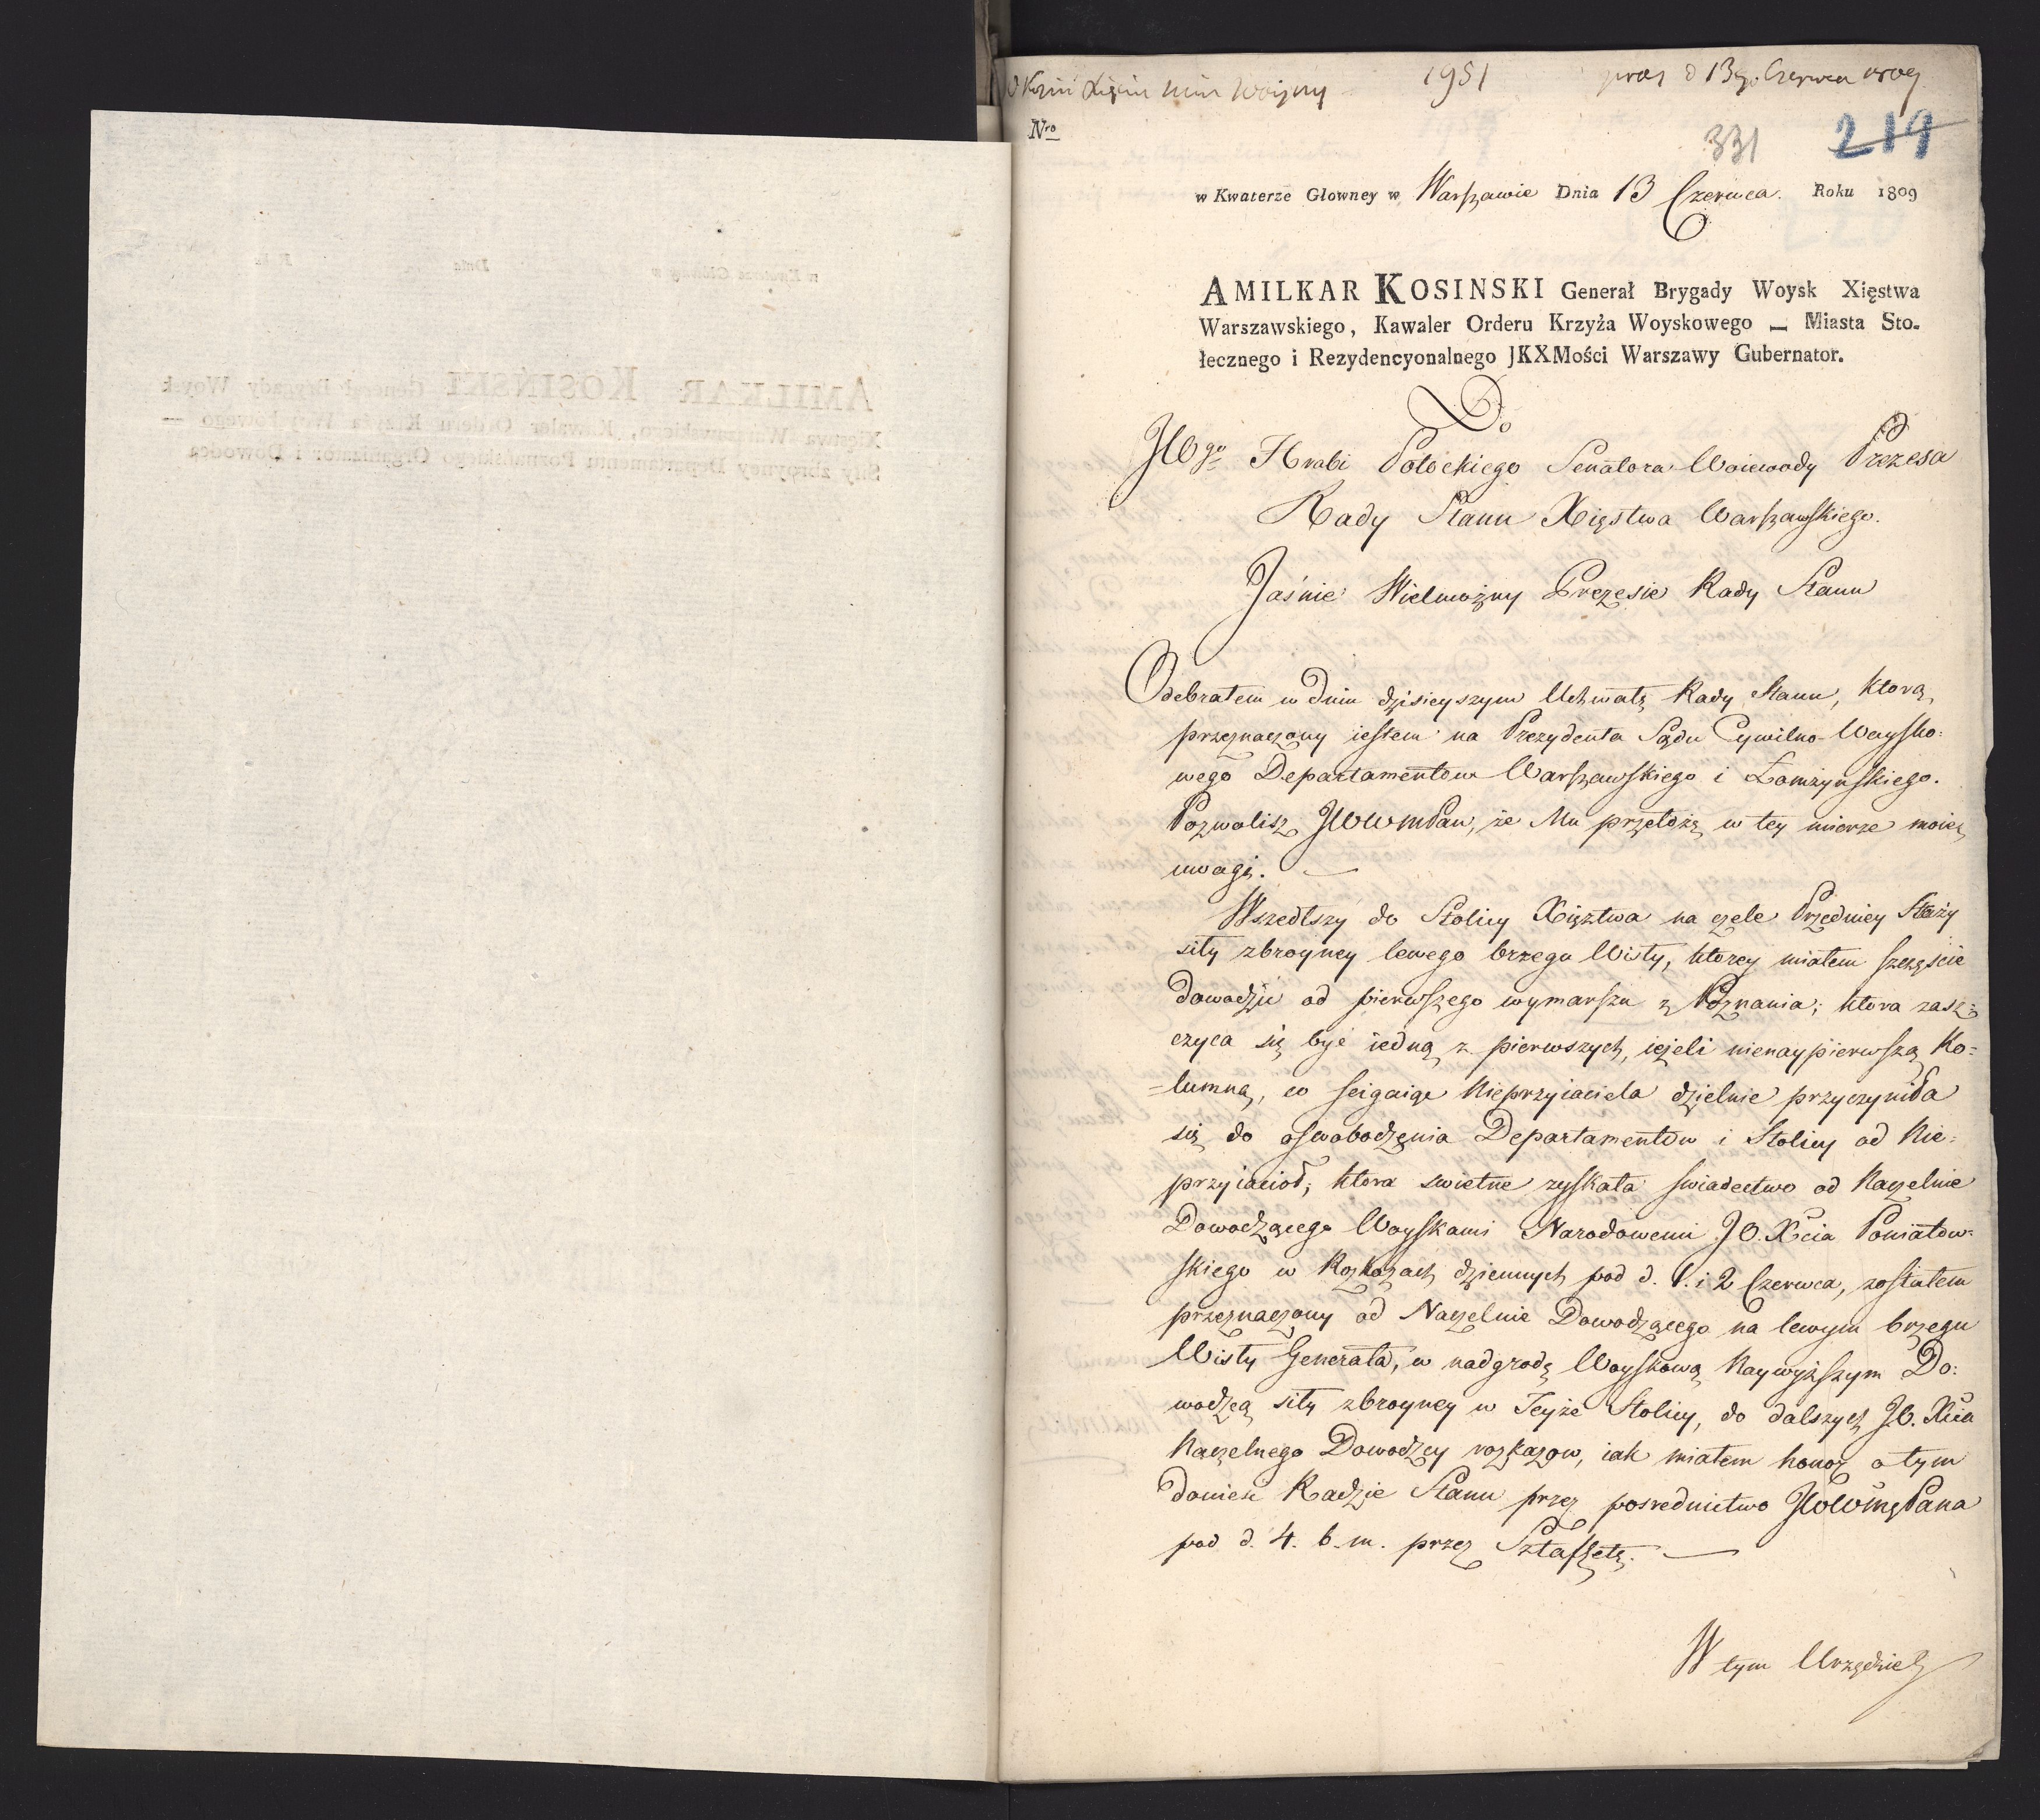 1951 pros d 13go Czerwca 1809
Nro
331 219
w Kwaterze Głowney w Warszawie Dnia 13 Czerwca. Roku 1809
AMILKAR KOSINSKI Generał Brygady Woysk Xięstwa
Warszawskiego, Kawaler Orderu Krzyża Woyskowego — Miasta Sto-
łecznego i Rezydencyonalnego JKXMości Warszawy Gubernator.
Do
JWgo Hrabi Potockiego Senatora Woiewody Prezesa
Rady Stanu Xięstwa Warszawskiego.
Jaśnie Wielmożny Prezesie Rady Stanu
Odebrałem w Dniu dzisieyszym Uchwałę Rady Stanu, ktorą
przeznaczony iestem na Prezydenta Sądu Cywilno-Woysko:
wego Departamentow Warszawskiego i Łomżynskiego.
Pozwolisz JWWmPan, że Mu przełożę w tey mierze moie
uwagi. —
Wszedłszy do Stolicy Xięztwa na czele Przedniey Straży
siły zbroyney lewego brzegu Wisły, ktorey miałem szczęście
dowodzić od pierwszego wymarszu z Poznania; ktora zasz:
czyca się być iedną z pierwszych, ieżeli nienaypierwszą Ko=
=lumną, co scigaiąc Nieprzyiaciela dzielnie przyczyniła
się do oswobodzenia Departamentow i Stolicy od Nie:
przyiacioł; ktora swietne zyskała swiadectwo od Naczelnie
Dowodzącego Woyskami Narodowemi J.O. Xcia Poniatow:
skiego w Rozkazach dziennych pod d. 1. i 2 Czerwca, zostałem
przeznaczony od Naczelnie Dowodzącego na lewym brzegu
Wisły Generała, w nadgrodę Woyskową Naywyższym Do:
wodzcą siły zbroyney w Teyże Stolicy, do dalszych JO. Xcia
Naczelnego Dowodzcy rozkazow, iak miałem honor o tym
donieść Radzie Stanu przez posrednictwo JWWmgPana
pod d. 4. b. m. przez Sztafetę. —
W tym Urzędzie